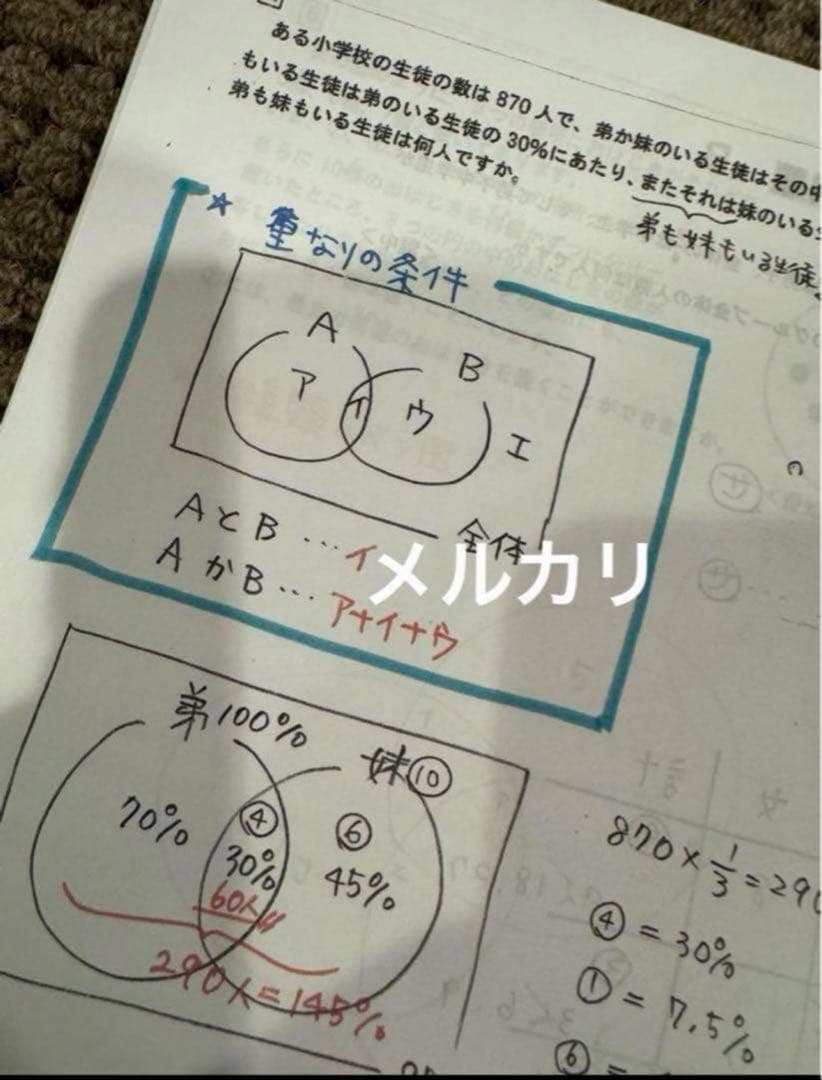 ある小学校の生徒の数は870人で、弟か妹のいる生徒はその中
もいる生徒は弟のいる生徒の30%にあたり、またそれは妹のいる
弟も妹もいる生徒は何人ですか。
弟も妹もいる生徒
★ 重なりの条件
A
B
ア
イ
ウ
エ
全体
AとB…イ
AかB…ア+イ+ウ
メルカリ
弟100%
妹⑩
70%
④
30%
60人
⑥
45%
290人=145%
870×1/3=290
④=30%
①=7.5%
⑥=